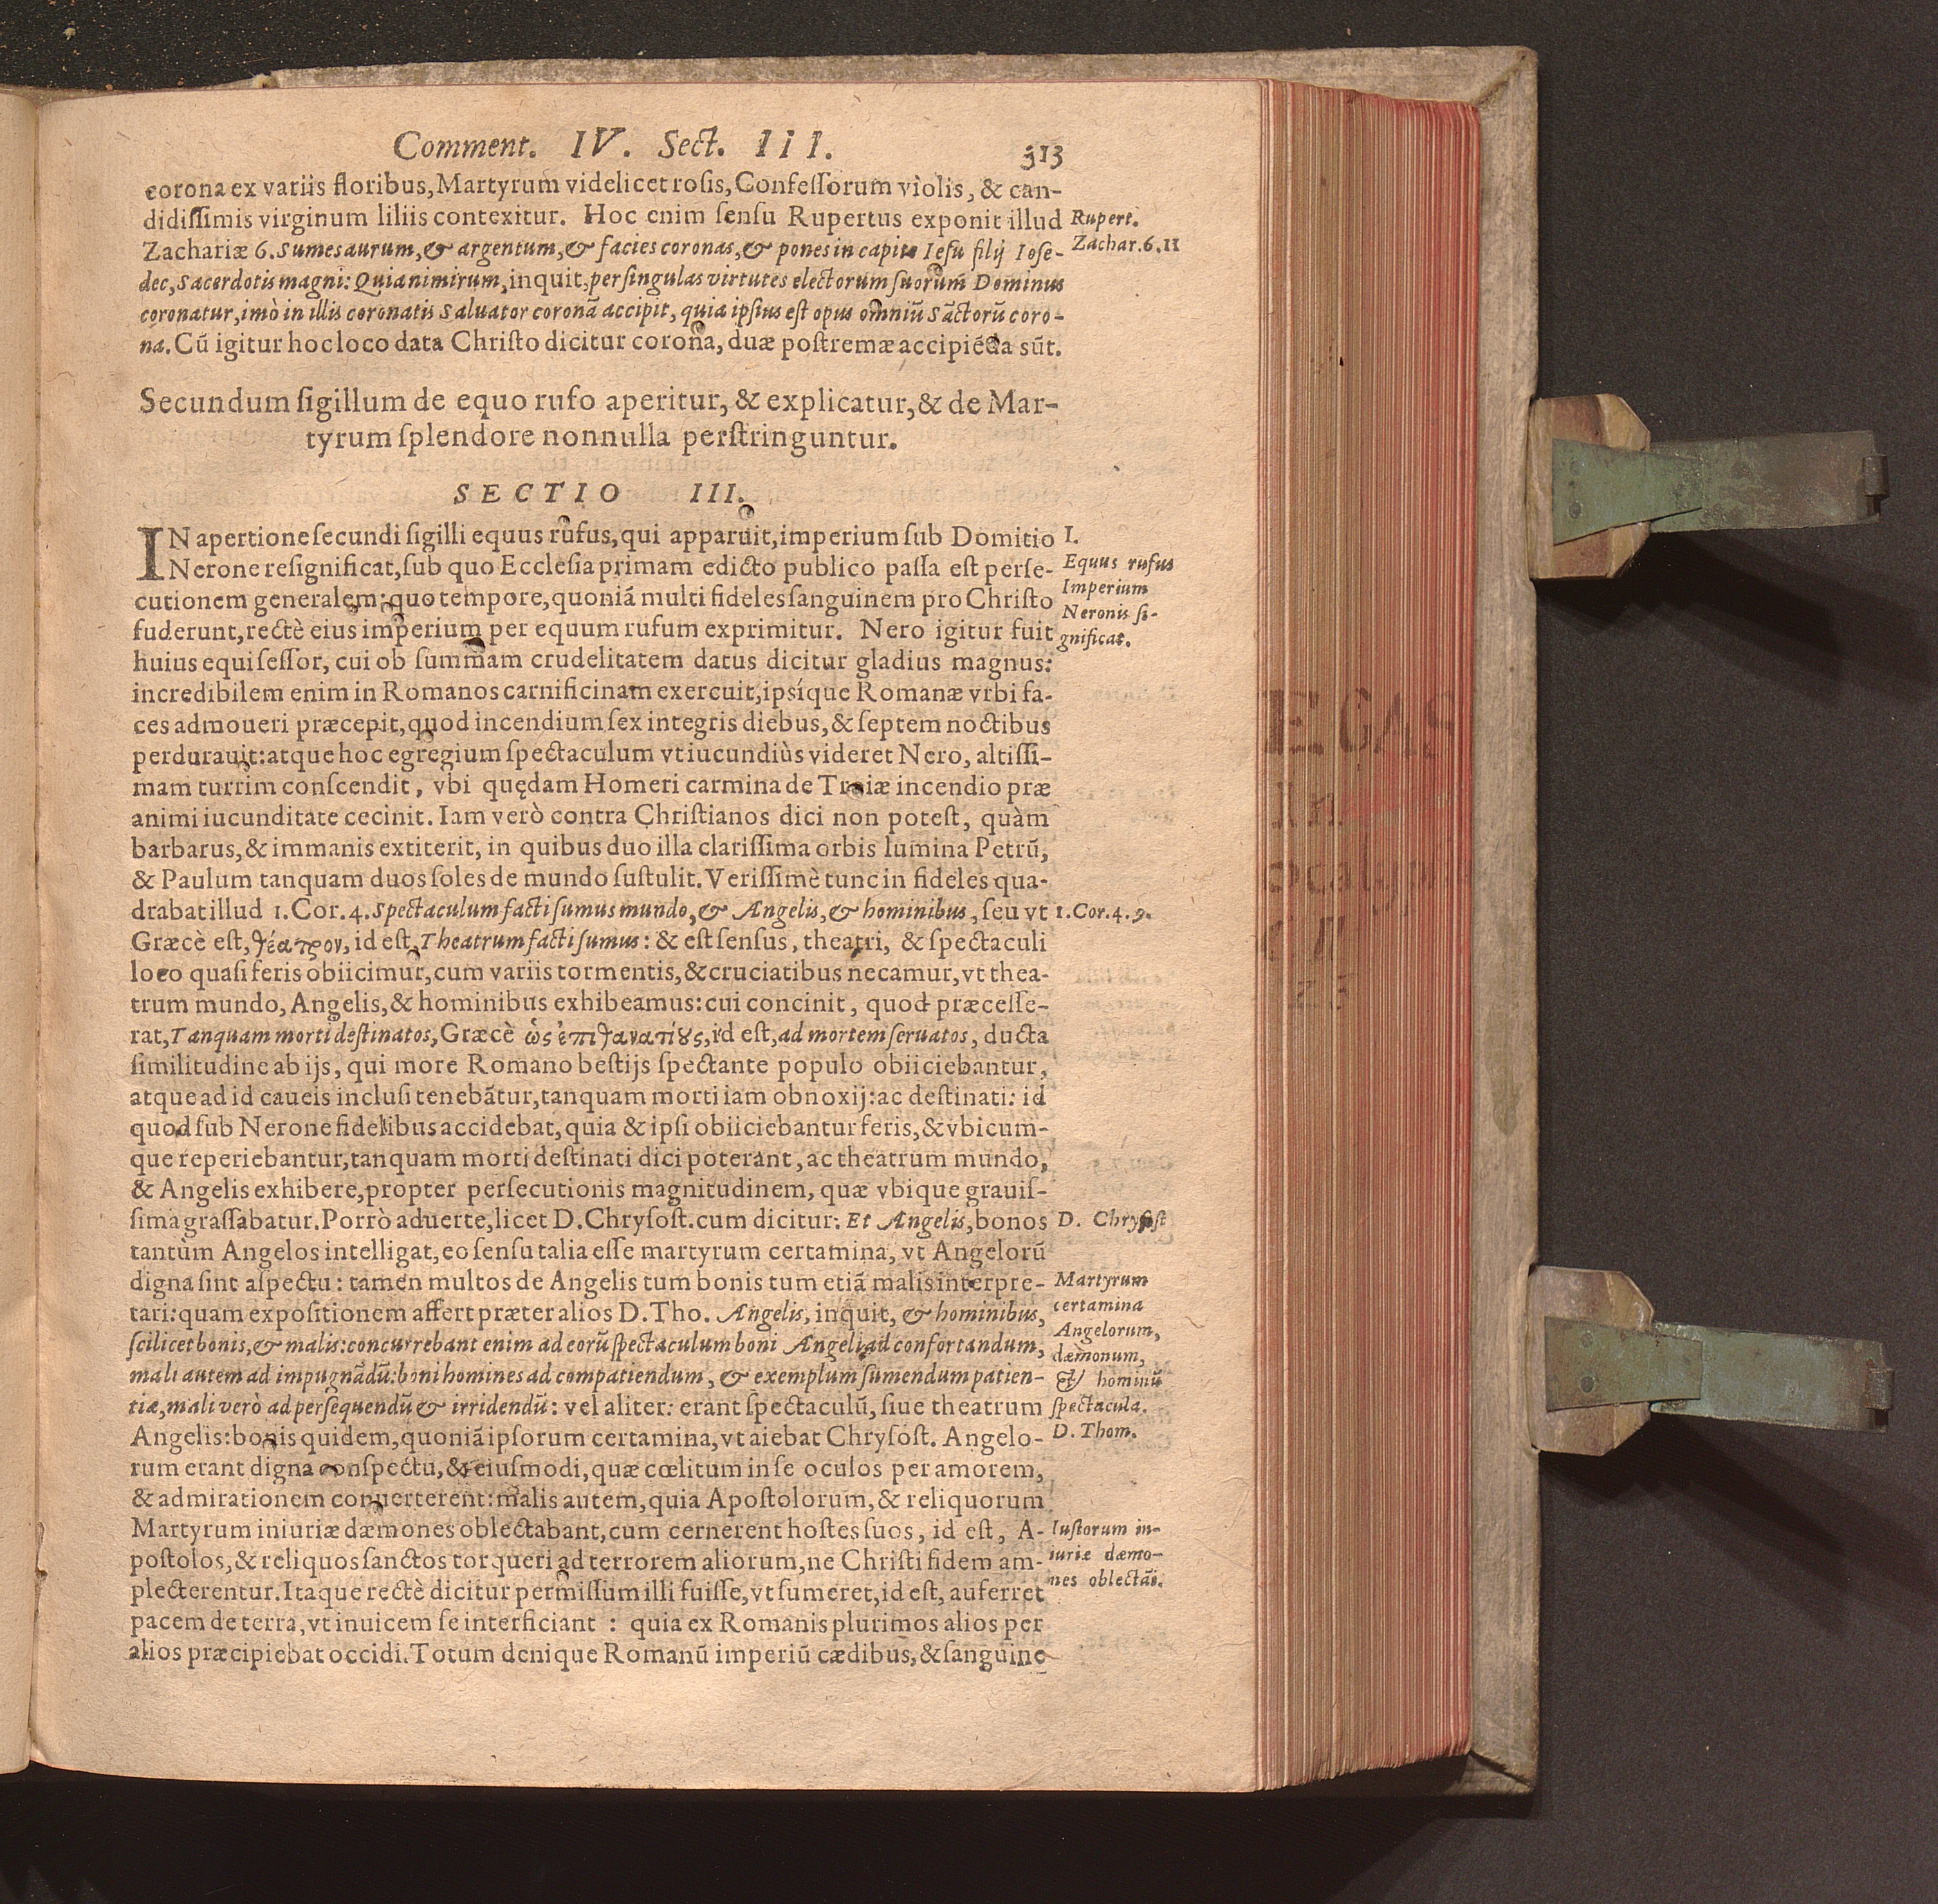 Comment. IV. Sect. III. 313
corona ex variis floribus, Martyrum videlicet rosis, Confessorum violis, & can-
didissimis virginum liliis contexitur. Hoc enim sensu Rupertus exponit illud
Rupert.
Zachariæ 6. Sumes aurum, & argentum, & facies coronas, & pones in capite Iesu filij Iose-
Zachar. 6. 11
dec, Sacerdotis magni: Quia nimirum, inquit, per singulas virtutes electorum suorum Dominus
coronatur, imò in illis coronatis Saluator coronã accipit, quia ipsius est opus omniũ Sãctorũ coro-
na. Cũ igitur hoc loco data Christo dicitur corona, duæ postremæ accipiẽda sũt.
Secundum sigillum de equo rufo aperitur, & explicatur, & de Mar-
tyrum splendore nonnulla perstringuntur.
SECTIO III.
IN apertione secundi sigilli equus rufus, qui apparuit, imperium sub Domitio
I.
Nerone resignificat, sub quo Ecclesia primam edicto publico passa est perse-
Equus rufus
cutionem generalem: quo tempore, quoniã multi fideles sanguinem pro Christo
Imperium
fuderunt, rectè eius imperium per equum rufum exprimitur. Nero igitur fuit
Neronis si-
gnificat.
huius equi sessor, cui ob summam crudelitatem datus dicitur gladius magnus:
incredibilem enim in Romanos carnificinam exercuit, ipsíque Romanæ vrbi fa-
ces admoueri præcepit, quod incendium sex integris diebus, & septem noctibus
perdurauit: atque hoc egregium spectaculum vt iucundiùs videret Nero, altissi-
mam turrim conscendit, vbi quędam Homeri carmina de Troiæ incendio præ
animi iucunditate cecinit. Iam verò contra Christianos dici non potest, quàm
barbarus, & immanis extiterit, in quibus duo illa clarissima orbis lumina Petrũ,
& Paulum tanquam duos soles de mundo sustulit. Verissimè tunc in fideles qua-
drabat illud 1. Cor. 4. Spectaculum facti sumus mundo, & Angelis, & hominibus, seu vt
1. Cor. 4. 9.
Græcè est, θέατρον, id est, Theatrum facti sumus: & est sensus, theatri, & spectaculi
loco quasi feris obiicimur, cum variis tormentis, & cruciatibus necamur, vt thea-
trum mundo, Angelis, & hominibus exhibeamus: cui concinit, quod præcesse-
rat, Tanquam morti destinatos, Græcè ὡς ἐπιθανατίȣς, id est, ad mortem seruatos, ducta
similitudine ab ijs, qui more Romano bestijs spectante populo obiiciebantur,
atque ad id caueis inclusi tenebãtur, tanquam morti iam obnoxij: ac destinati: id
quod sub Nerone fidelibus accidebat, quia & ipsi obiiciebantur feris, & vbicum-
que reperiebantur, tanquam morti destinati dici poterant, ac theatrum mundo,
& Angelis exhibere, propter persecutionis magnitudinem, quæ vbique grauis-
sima grassabatur. Porrò aduerte, licet D. Chrysost. cum dicitur: Et Angelis, bonos
D. Chrysost
tantùm Angelos intelligat, eo sensu talia esse martyrum certamina, vt Angelorũ
digna sint aspectu: tamen multos de Angelis tum bonis tum etiã malis interpre-
Martyrum
tari: quam expositionem affert præter alios D. Tho. Angelis, inquit, & hominibus,
certamina
scilicet bonis, & malis: concurrebant enim ad eorũ spectaculum boni Angeli ad confortandum,
Angelorum,
dæmonum,
mali autem ad impugnãdũ: boni homines ad compatiendum, & exemplum sumendum patien-
& hominũ
tiæ, mali verò ad persequendũ & irridendũ: vel aliter: erant spectaculũ, siue theatrum
spectacula.
Angelis: bonis quidem, quoniã ipsorum certamina, vt aiebat Chrysost. Angelo-
D. Thom.
rum erant digna conspectu, & eiusmodi, quæ cœlitum in se oculos per amorem,
& admirationem conuerterent: malis autem, quia Apostolorum, & reliquorum
Martyrum iniuriæ dæmones oblectabant, cum cernerent hostes suos, id est, A-
Iustorum in-
postolos, & reliquos sanctos torqueri ad terrorem aliorum, ne Christi fidem am-
iuriæ dæmo-
plecterentur. Itaque rectè dicitur permissum illi fuisse, vt sumeret, id est, auferret
nes oblectãt.
pacem de terra, vt inuicem se interficiant : quia ex Romanis plurimos alios per
alios præcipiebat occidi. Totum denique Romanũ imperiũ cædibus, & sanguine